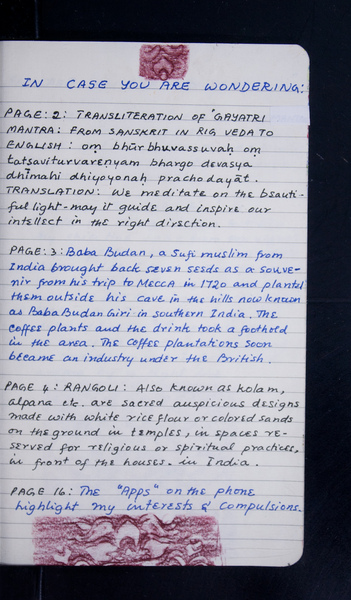 IN CASE YOU ARE WONDERING:
PAGE: 2: TRANSLITERATION OF "GAYATRI
MANTRA: FROM SANSKRIT IN RIG VEDA TO
ENGLISH: oṃ bhūr bhuvassuvaḥ oṃ
tatsaviturvareṇyam bhargo devasya
dhīmahi dhiyoyonaḥ prachodayāt.
TRANSLATION: We meditate on the beauti-
ful light - may it guide and inspire our
intellect in the right direction.
PAGE: 3: Baba Budan, a Sufi muslim from
India brought back seven seeds as a souve-
nir from his trip to MECCA in 1720 and planted
them outside his cave in the hills now known
as Baba Budan Giri in southern India. The
coffee plants and the drink took a foothold
in the area. The coffee plantations soon
became an industry under the British.
PAGE 4: RANGOLI: Also known as kolam,
alpana etc. are sacred auspicious designs
made with white rice flour or colored sands
on the ground in temples, in spaces re-
served for religious or spiritual practices,
in front of the houses. in India.
PAGE 16: The "Apps" on the phone
highlight my interests & compulsions.